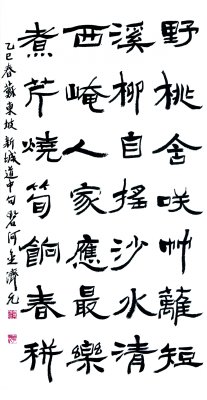 野桃含咲竹籬短
溪柳自搖沙水清
西崦人家應最樂
煮芹燒筍餉春耕
乙巳春蘇東坡新城道中句 河 濟